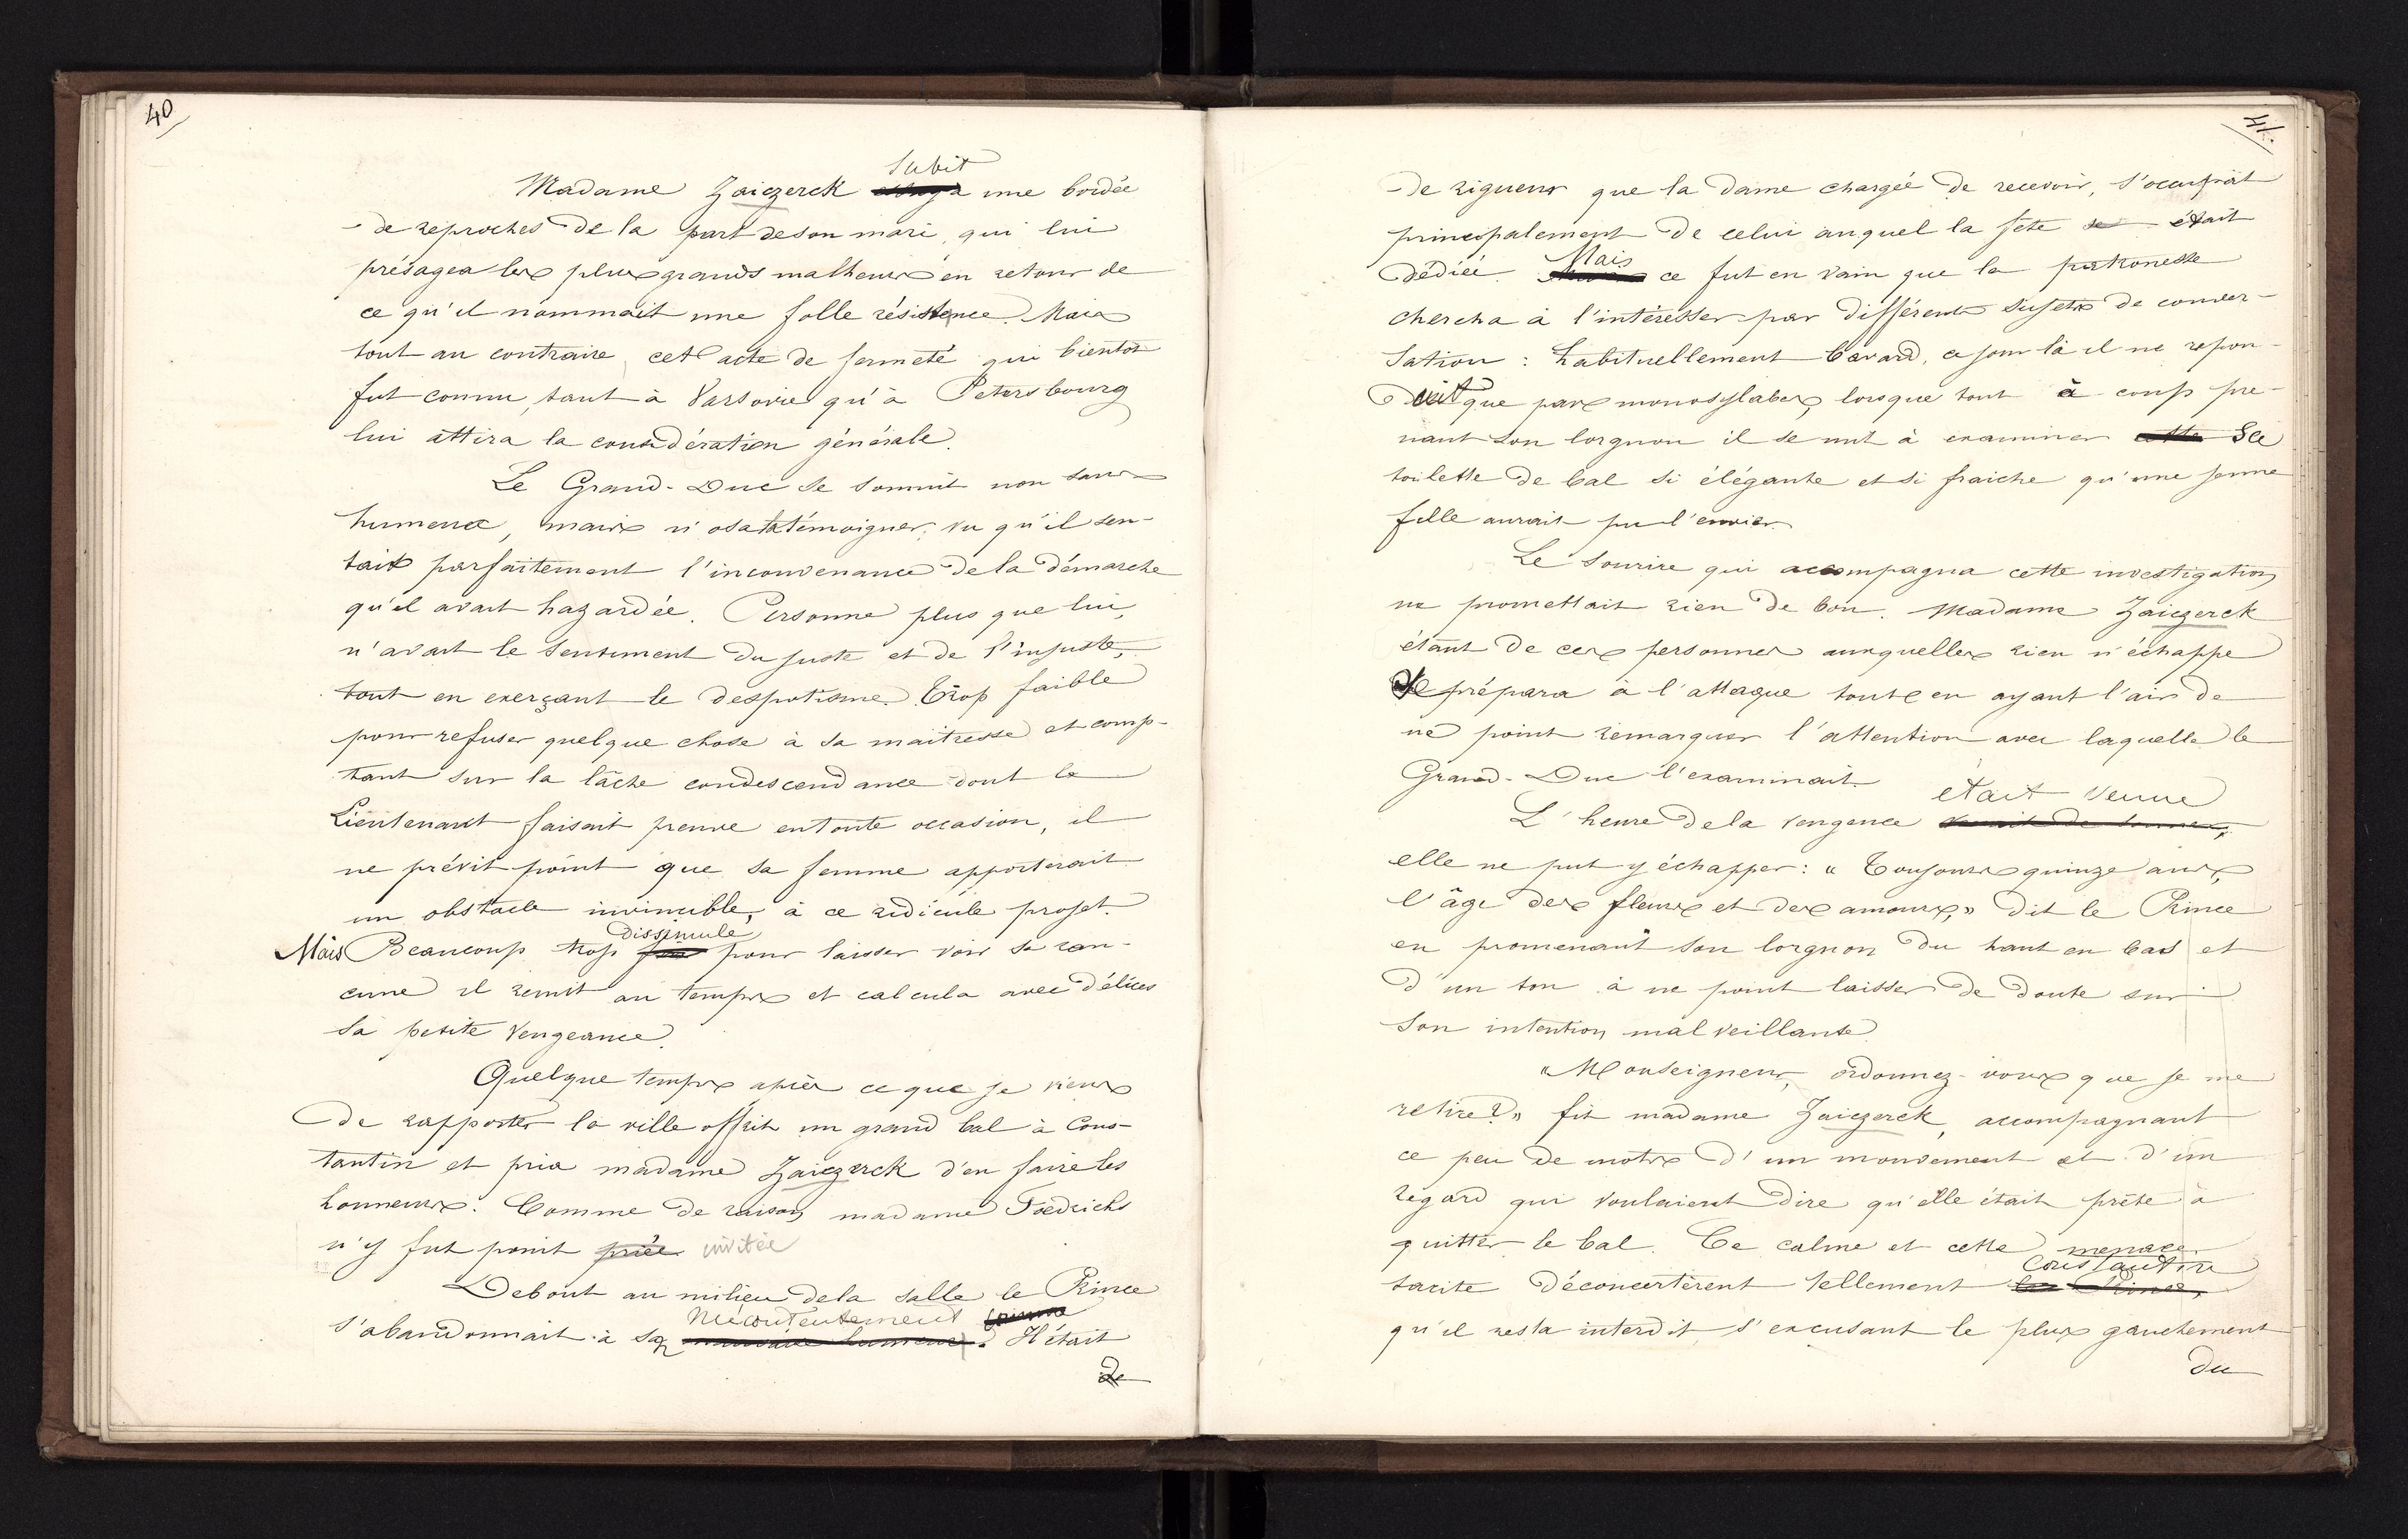 40
Madame Zaiczerck subit une bordée
de reproches de la part de son mari, qui lui
présagea les plus grands malheurs en retour de
ce qu'il nommait une folle résistence. Mais
tout au contraire, cet acte de fermeté qui bientôt
fut connu, tant à Varsovie qu'à Petersbourg
lui attira la considération générale.
Le Grand-Duc se soumit non sans
humeur, mais n'osa la témoigner, vu qu'il sen-
tait parfaitement l'inconvenance de la démarche
qu'il avait hazardée. Personne plus que lui,
n'avait le sentiment du juste et de l'injuste,
tout en exerçant le despotisme. Trop faible
pour refuser quelque chose à sa maitresse et comp-
tant sur la lâche condescendance dont le
Lieutenant faisait preuve en toute occasion, il
ne prévit point que sa femme apporterait
un obstacle invincible, à ce ridicule projet.
Mais Beaucoup trop dissimulé pour laisser voir sa ran-
cune il remit au temps et calcula avec délices
sa petite vengeance.
Quelque temps après ce que je viens
de rapporter la ville offrit un grand bal à Cons-
tantin et pria madame Zaiczerck d'en faire les
honneurs. Comme de raison madame Fœdrichs
n'y fut point priée invitée
Debout au milieu de la salle le Prince
s'abandonnait à son mécontentement mauvaise humeur. Il était
de
41.
de rigueur que la dame chargée de recevoir, s'occupât
principalement de celui auquel la fête se était
dédiée. Mais ce fut en vain que la patronesse
chercha à l'intéresser par différents sujets de conver-
sation : habituellement bavard, ce jour là il ne repon-
dait que par monosylabes, lorsque tout à coup pre-
nant son lorgnon il se mit à examiner cette sa
toilette de bal si élégante et si fraiche qu'une jeune
fille aurait pu l'envier.
Le sourire qui accompagna cette investigation
ne promettait rien de bon. Madame Zaiczerck
étant de ces personnes auxquelles rien n'échappe
se prépara à l'attaque tout en ayant l'air de
ne point remarquer l'attention avec laquelle le
Grand-Duc l'examinait.
L'heure de la vengence était venue venait de sonner,
elle ne put y échapper : « Toujours quinze ans,
l'âge des fleurs et des amours, » dit le Prince
en promenant son lorgnon du haut en bas et
d'un ton à ne point laisser de doute sur
son intention malveillante.
« Monseigneur, ordonnez-vous que je me
retire ? » fit madame Zaiczerck, accompagnant
ce peu de mots d'un mouvement et d'un
regard qui voulaient dire qu'elle était prête à
quitter le bal. Ce calme et cette menace
tacite déconcertèrent tellement Constantin le Prince,
qu'il resta interdit, s'excusant le plus gauchement
du